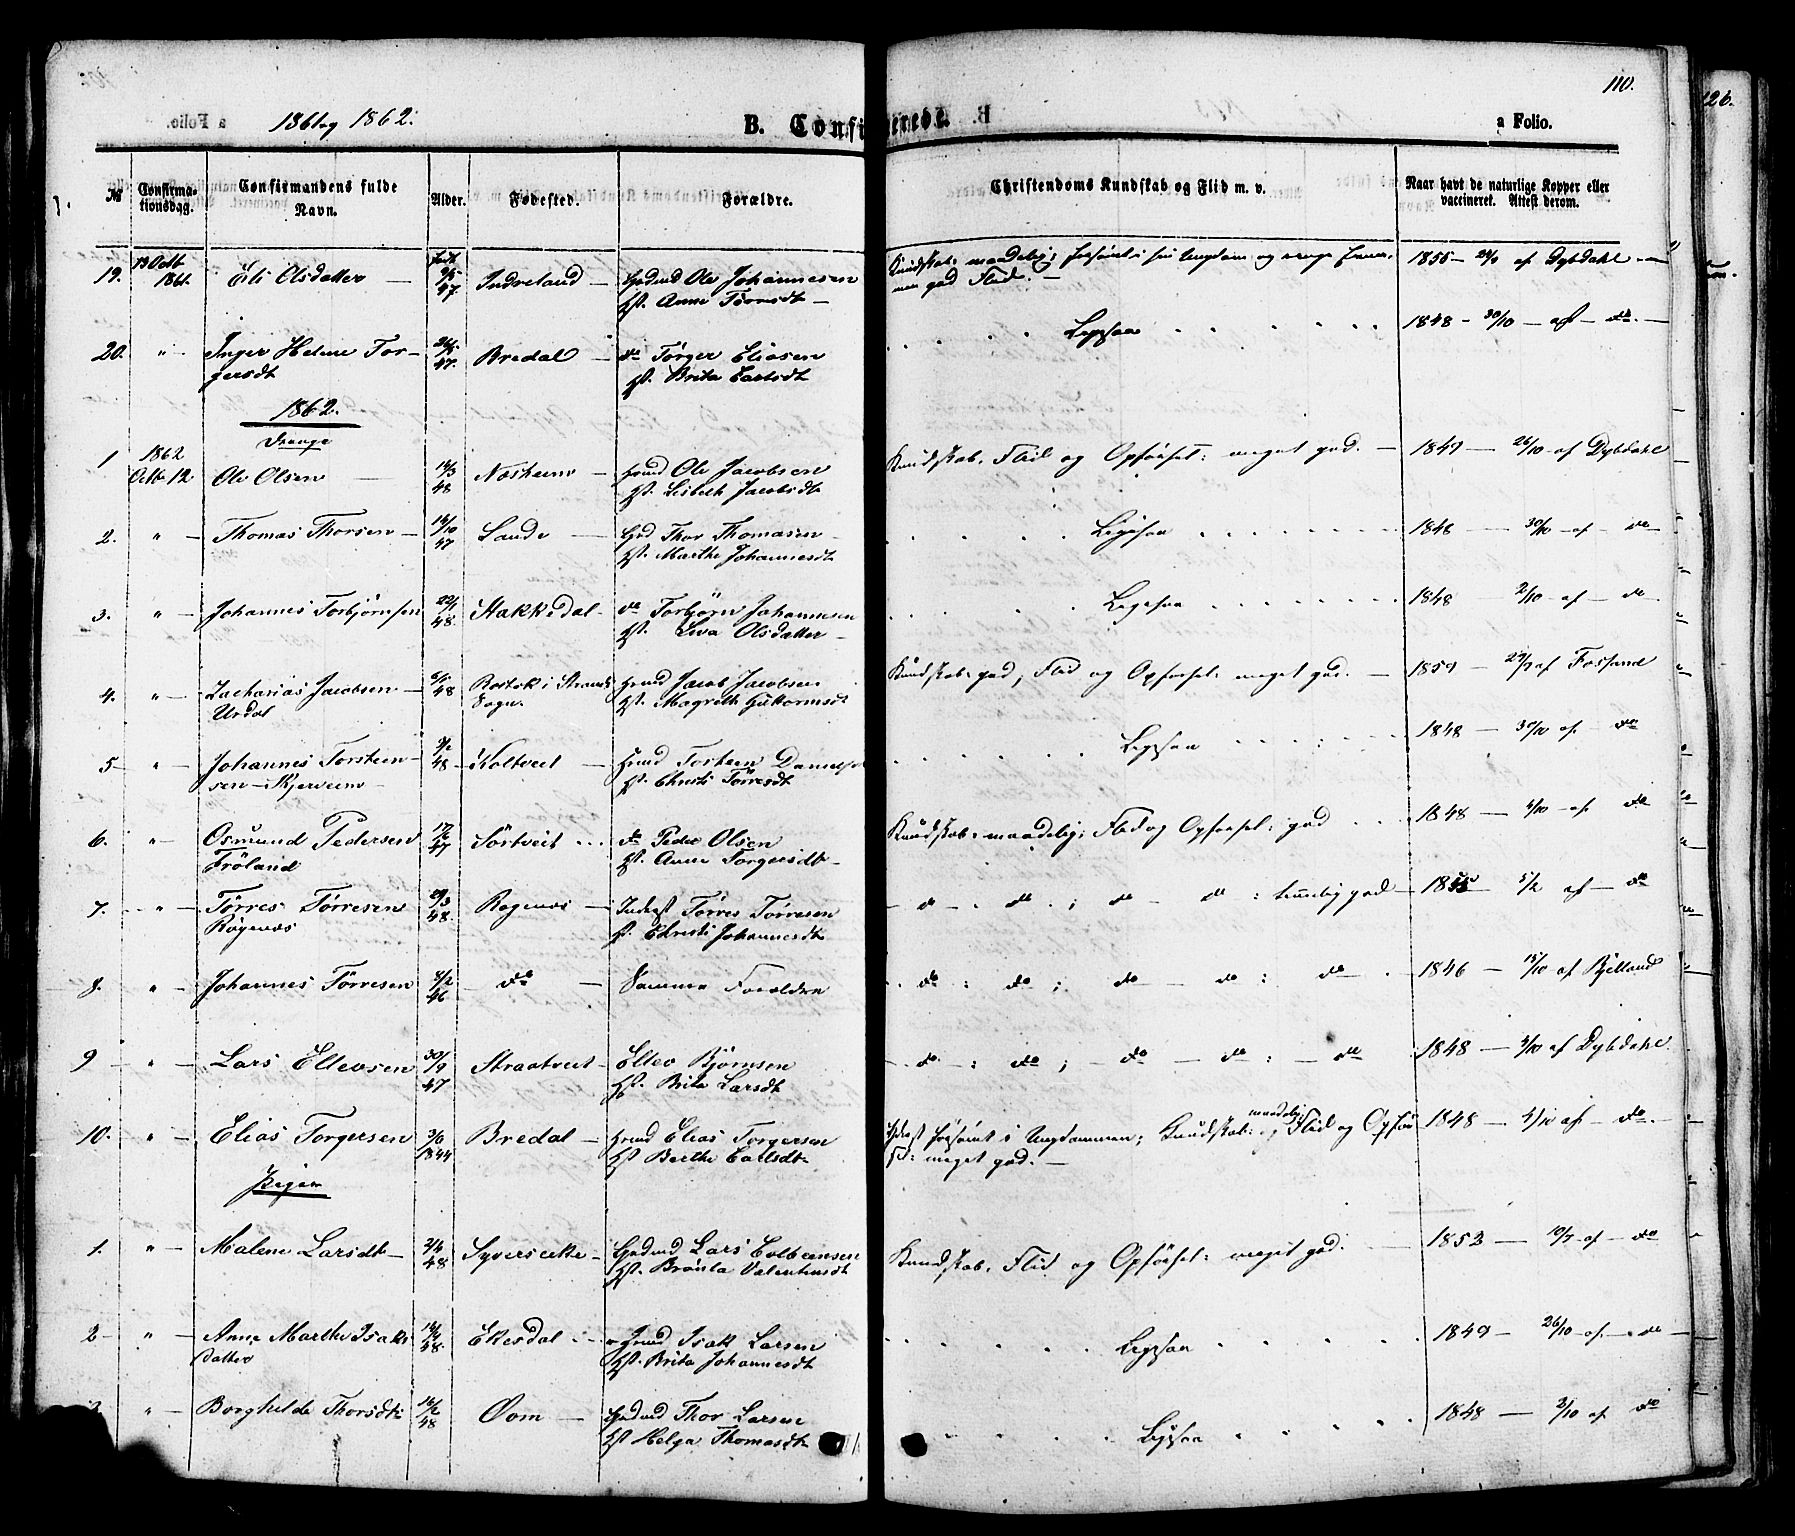 110.
126.
1861 og 1862.
B. Confirmerede.
a Folio.
№
Confirmationsdag.
Confirmandens fulde Navn.
Alder.
Fødested.
Forældre.
Christendoms Kundskab og Flid m. v.
Naar havt de naturlige Kopper eller vaccineret. Attest derom.
19. 13 Octb 1861. Eli Olsdatter — født 47. Indreland — Gdmd Ole Johannesen Hst. Anne — 1855 — af Dybdahl —
20. " - Inger Helene Torgersdt 47. Bredal — do Törger Eliasen Hst. Brita Carlsdt Ligesaa 1848 - 30/10 — af — do —
1862.
Drenge
1 1862 Octb. 12 Ole Olsen — 14/3 48 Næsheim — Ole Jacobsen Hst. Lisbeth Jacobsdt Kundskab, Flid og Opførsel: meget god. — 1849 — 26/10 af Dybdahl
2. " — Thomas Thorsen — 14/10 47 Sande — Thor Thomasen Hst. Marthe Johannesdt Ligesaa 1848 — 30/10 — af — do
3. " — Johannes Torbjørnsen 22/1 48. Stakkedal — do Torbjørn Johannesen Hst. Siva Olsdatter — Ligesaa 1848 2/10 af — do
4. " — Zacharias Jacobsen — Urdal 48 i Strands Sogn. Jacob Jacobsen Hst. Magrethe Guttormsdt Kundskab: god, Flid og Opførsel: meget god. — 1859 — af Fossand
5 " — Johannes Torsteensen — Skjerveim 9/2 48 Koltveit — Torsteen Hst. Christi Törresdt Ligesaa 1848 — 30/10 af. do
6. " Osmund Pedersen Fröland 17/6 47 Sörtveit do Peder Olsen Hst. Anne Torgersdt — Kundskab: maadelig; Flid og Opførsel: god 1848 — 4/10 — af. do
7. " — Törres Törresen Røgenæs 29/3 48. Rogenæs — Inderst Törres Törresen Hst. Christi Johannesdt — do — do ; do — do : temmelig god — 1855 — 5/2 af — do
8. " — Johannes Törresen 8/2 46 — do — Samme Forældre do : do ; do — do : do — 1846 — 15/10 af Bjelland
9 — " — Lars Ellevsen 30/9 47 Straatveit — Ellev Bjørnsen Hst. Brita Larsdt — do : do ; — do — do : — do 1848 — 4/10 af Dybdahl.
10. " — Elias Torgersen 1844 Bredal — Elias Torgersen Hst. Berthe Carlsdt forsömt i Ungdommen; Kundskab: maadelig og Flid og Opførsel: meget god. — 1848 — 4/10 af — do —
Piger
1. " — Malene Larsdt — 2/4 48 — Gdmd Lars Hst. Valentinsdt Kundskab, Flid og Opførsel: meget god. — 1853 — 10/7 af — do
2 — " — Anne Marthe Isaksdatter 48. Ekesdal Isak Larsen Hst. Brita Johannesdt Ligesaa 1849 — 26/10 — af. — do —
" — Borghilde Thorsdt 16/2 48 Øvm — Gdmd Thor Larsen Hst Helga Thomasdt Ligesaa 1848 — 2/10 af do